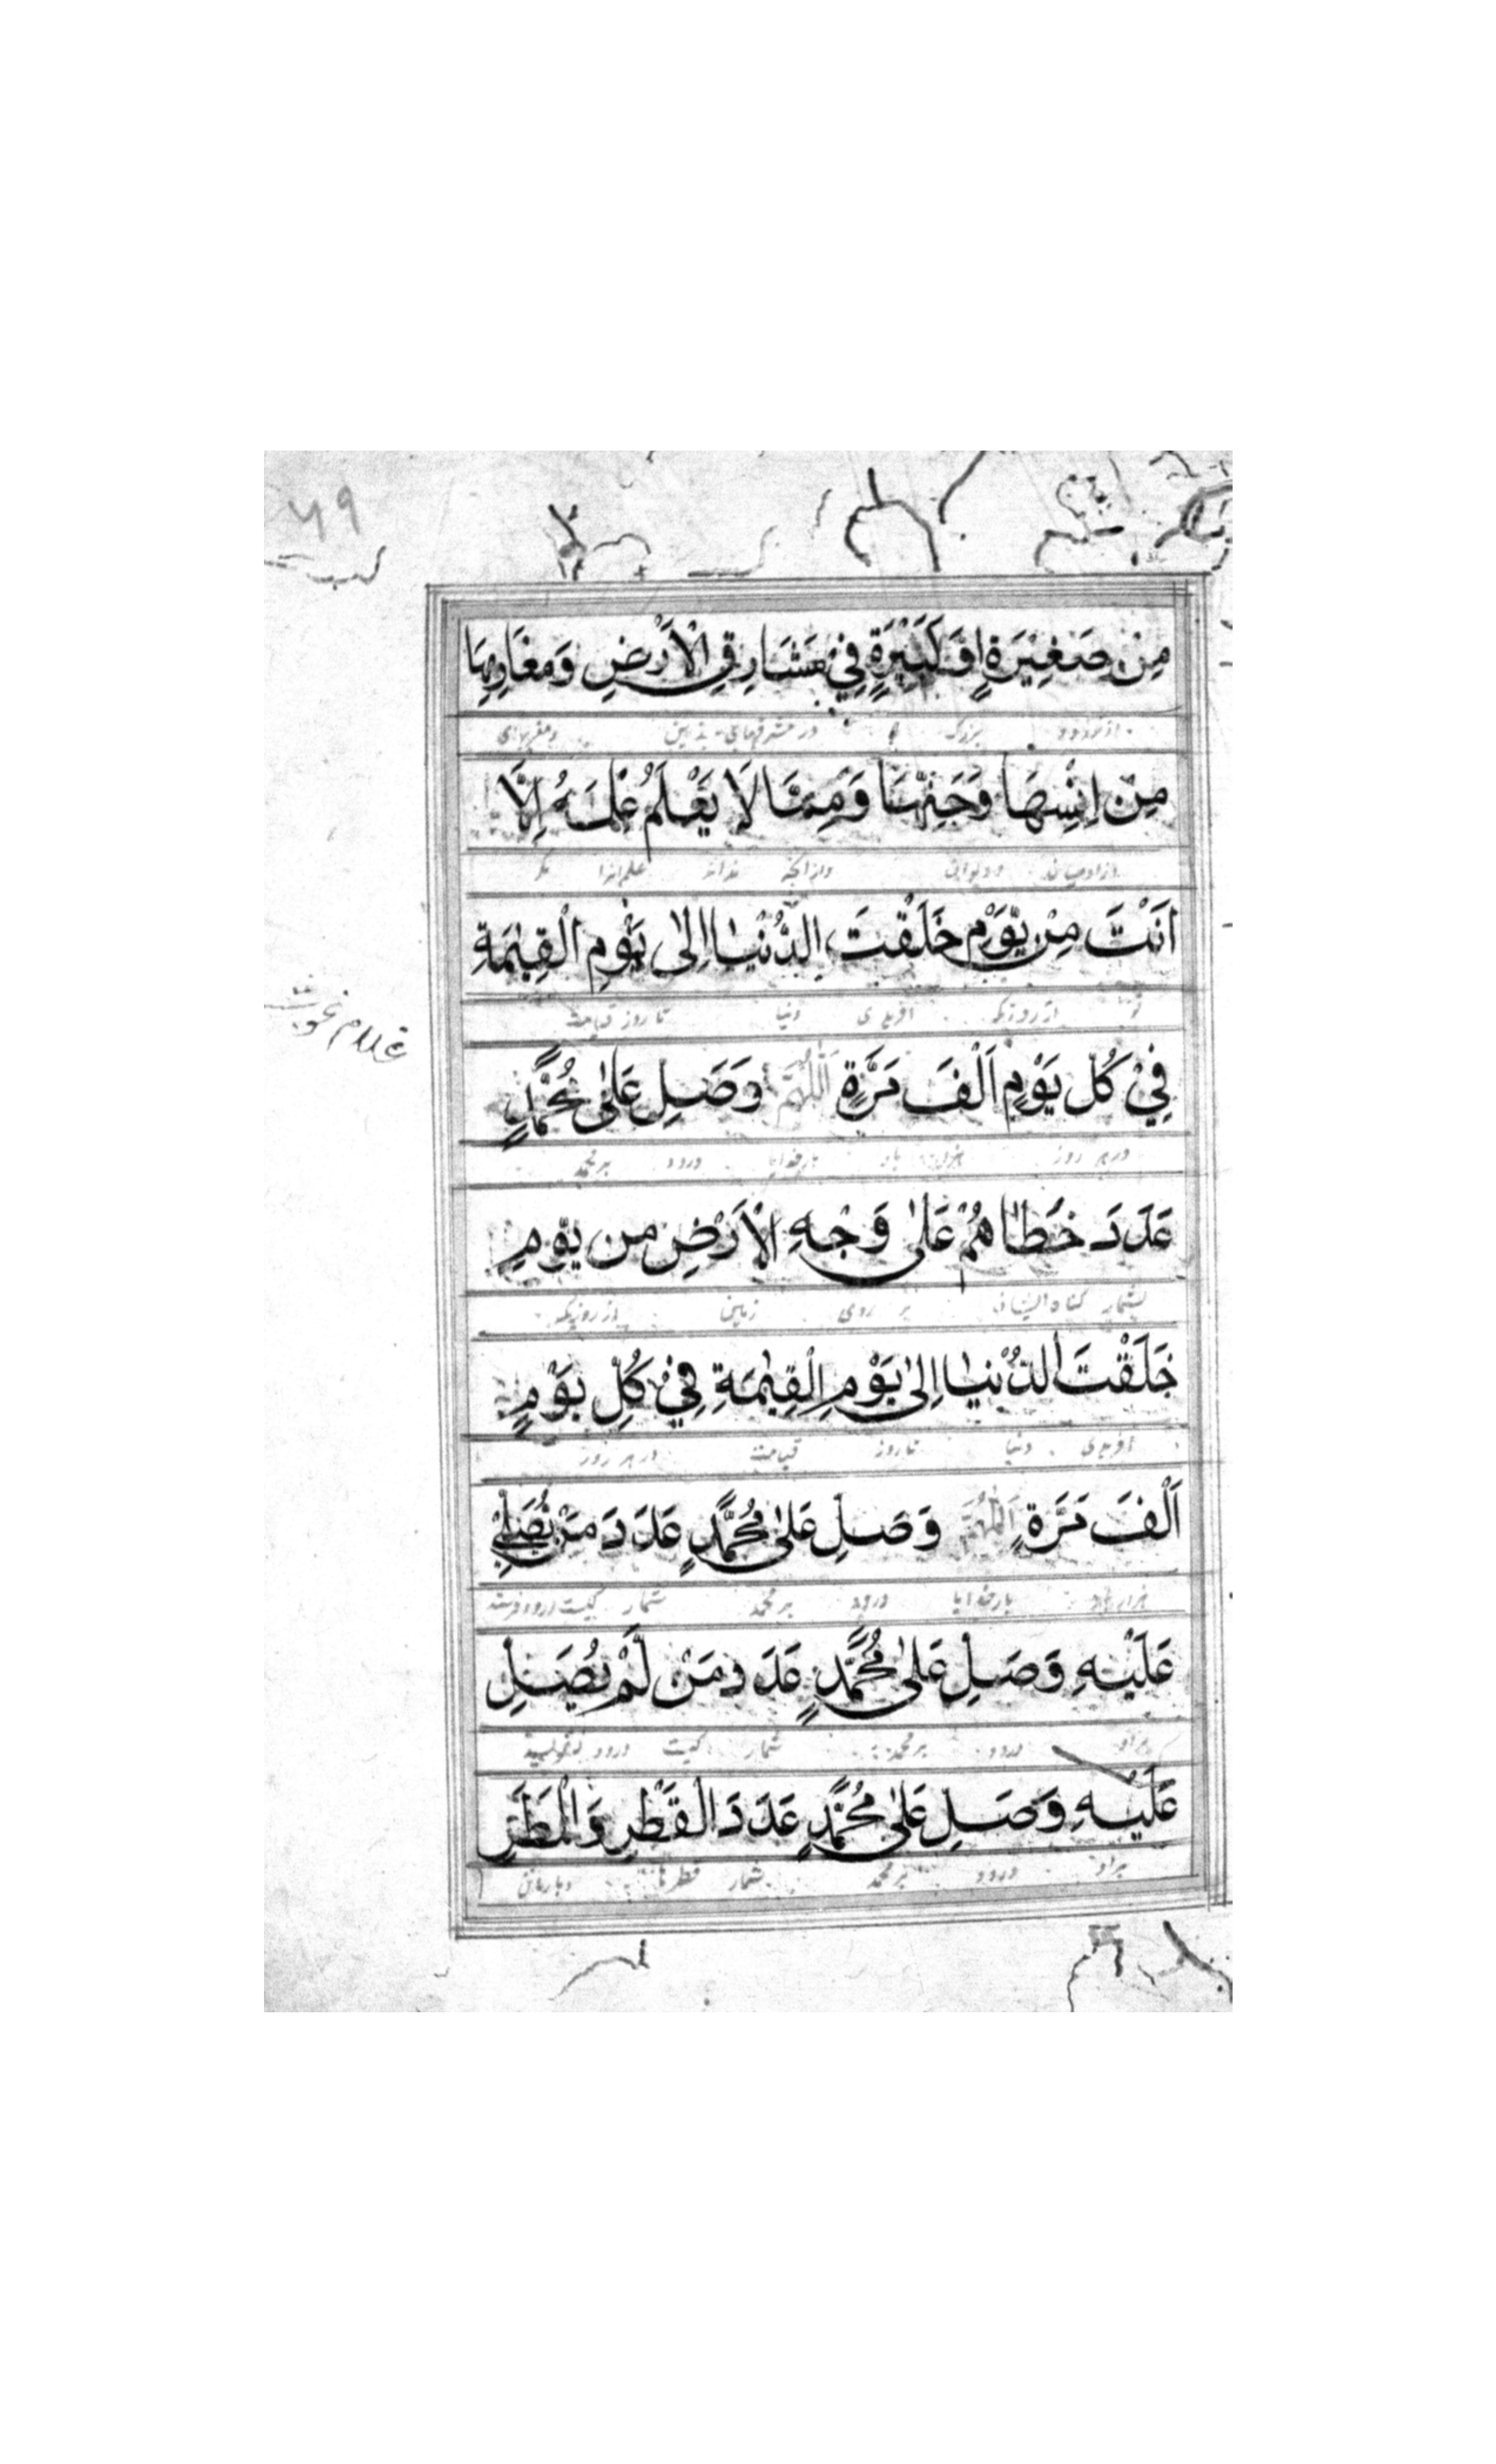 ۶۹
مِنْ صَغِيْرَةٍ اَوْ كَبِيْرَةٍ فِيْ مَشَارِقِ الْاَرْضِ وَمَغَارِبِهَا
بزرگ در مشرقهای زمین و مغربهای
مِنْ اِنْسِهَا وَجَنِّهَا وَمِمَّا لَا يَعْلَمُ عِلْمَهُ اِلَّا
از آدمیان و دیوان و از آنچه نداند علم آنرا مگر
اَنْتَ مِنْ يَّوْمِ خَلَقْتَ الدُّنْيَا اِلٰى يَوْمِ الْقِيٰمَةِ
تو از روزیکه آفریدی دنیا تا روز قیامت
فِيْ كُلِ يَوْمٍ اَلْفَ مَرَّةٍ اَللّٰهُمَّ وَصَلِ عَلٰى مُحَمَّدٍ
در هر روز هزار بار بارخدایا درود بر محمد
عَدَدَ خَطَاهُمْ عَلٰى وَجْهِ الْاَرْضِ مِن يَّوْمِ
بشمار گناه ایشان بر روی زمین از روزیکه
خَلَقْتَ الدُّنْيَا اِلٰى يَوْمِ الْقِيٰمَةِ فِيْ كُلِ يَوْمٍ
آفریدی دنیا تا روز قیامت در هر روز
اَلْفَ مَرَّةٍ اَللّٰهُمَّ وَصَلِ عَلٰى مُحَمَّدٍ عَدَدَ مَنْ يُصَلِّيْ
هزار بار بارخدایا درود بر محمد شمار کیست درود فرستد
عَلَيْهِ وَصَلِ عَلٰى مُحَمَّدٍ عَدَدَ مَنْ لَّمْ يُصَلِ
بر او درود بر محمد شمار کیست درود
عَلَيْهِ وَصَلِ عَلٰى مُحَمَّدٍ عَدَدَ الْقَطْرِ وَالْمَطَرِ
بر او درود بر محمد شمار قطرها و باران
غلام